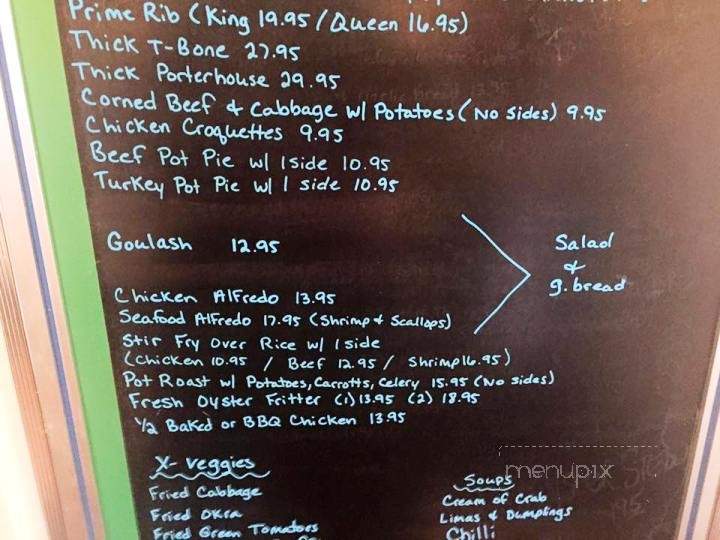 Prime Rib (King 19.95 / Queen 16.95)
Thick T-Bone 27.95
Thick Porterhouse 29.95
Corned Beef & Cabbage w/ Potatoes (No Sides) 9.95
Chicken Croquettes 9.95
Beef Pot Pie w/ 1 side 10.95
Turkey Pot Pie w/ 1 side 10.95
Goulash 12.95
Salad
&
g. bread
Chicken Alfredo 13.95
Seafood Alfredo 17.95 (Shrimp & Scallops)
Stir Fry Over Rice w/ 1 side
(Chicken 10.95 / Beef 12.95 / Shrimp 16.95)
Pot Roast w/ Potatoes, Carrotts, Celery 15.95 (No sides)
Fresh Oyster Fritter (1) 13.95 (2) 18.95
1/2 Baked or BBQ Chicken 13.95
X-Veggies
Fried Cabbage
Fried Okra
Fried Green Tomatoes
Soups
Cream of Crab
Limas & Dumplings
Chilli
menupix